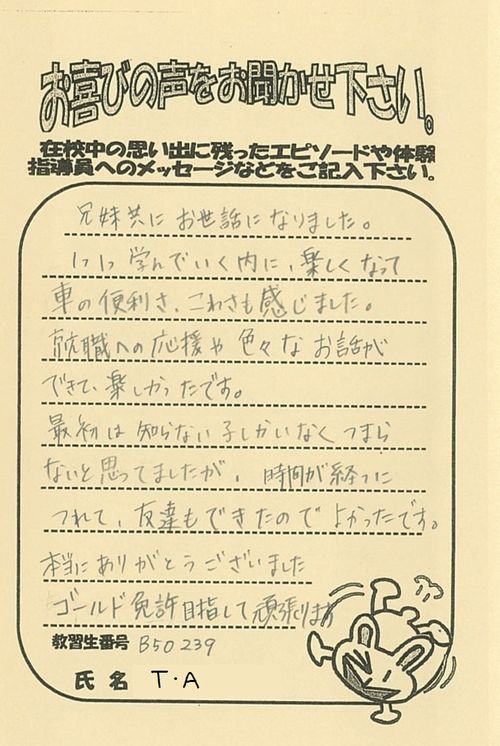 お喜びの声をお聞かせ下さい。
在校中の思い出に残ったエピソードや体験
指導員へのメッセージなどをご記入下さい。
兄妹共に お世話になりました。
1つ1つ 学んでいく内に、楽しくなって
車の便利さ、こわさも感じました。
就職への応援や 色々な お話が
できて、楽しかったです。
最初は 知らない子しかいなく つまら
ないと思ってましたが、時間が経つに
つれて、友達もできたので よかったです。
本当にありがとうございました
ゴールド免許目指して頑張ります
教習生番号 B50239
氏名 T・A